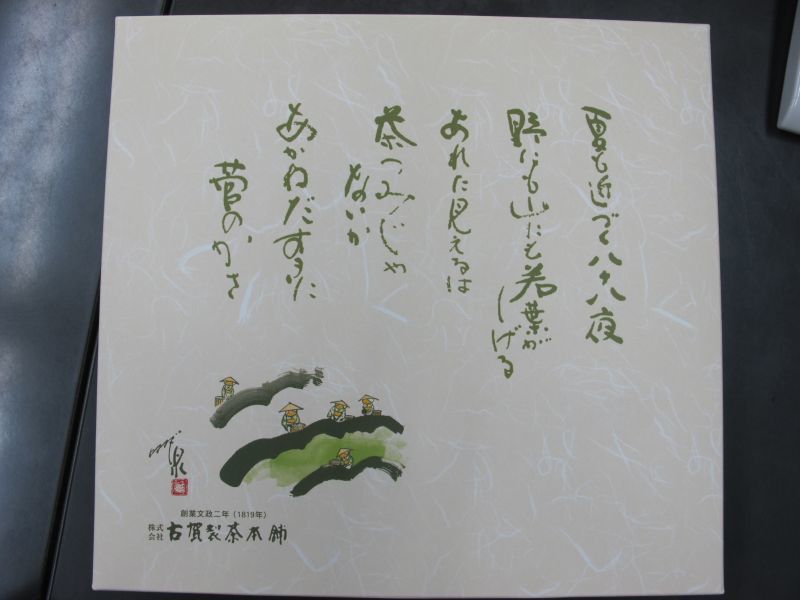 夏も近づく八十八夜
野にも山にも若葉が
しげる
あれに見えるは
茶つみじゃ
ないか
あかねだすきに
菅のかさ
泉
創業文政二年（1819年）
株式会社 古賀製茶本舗